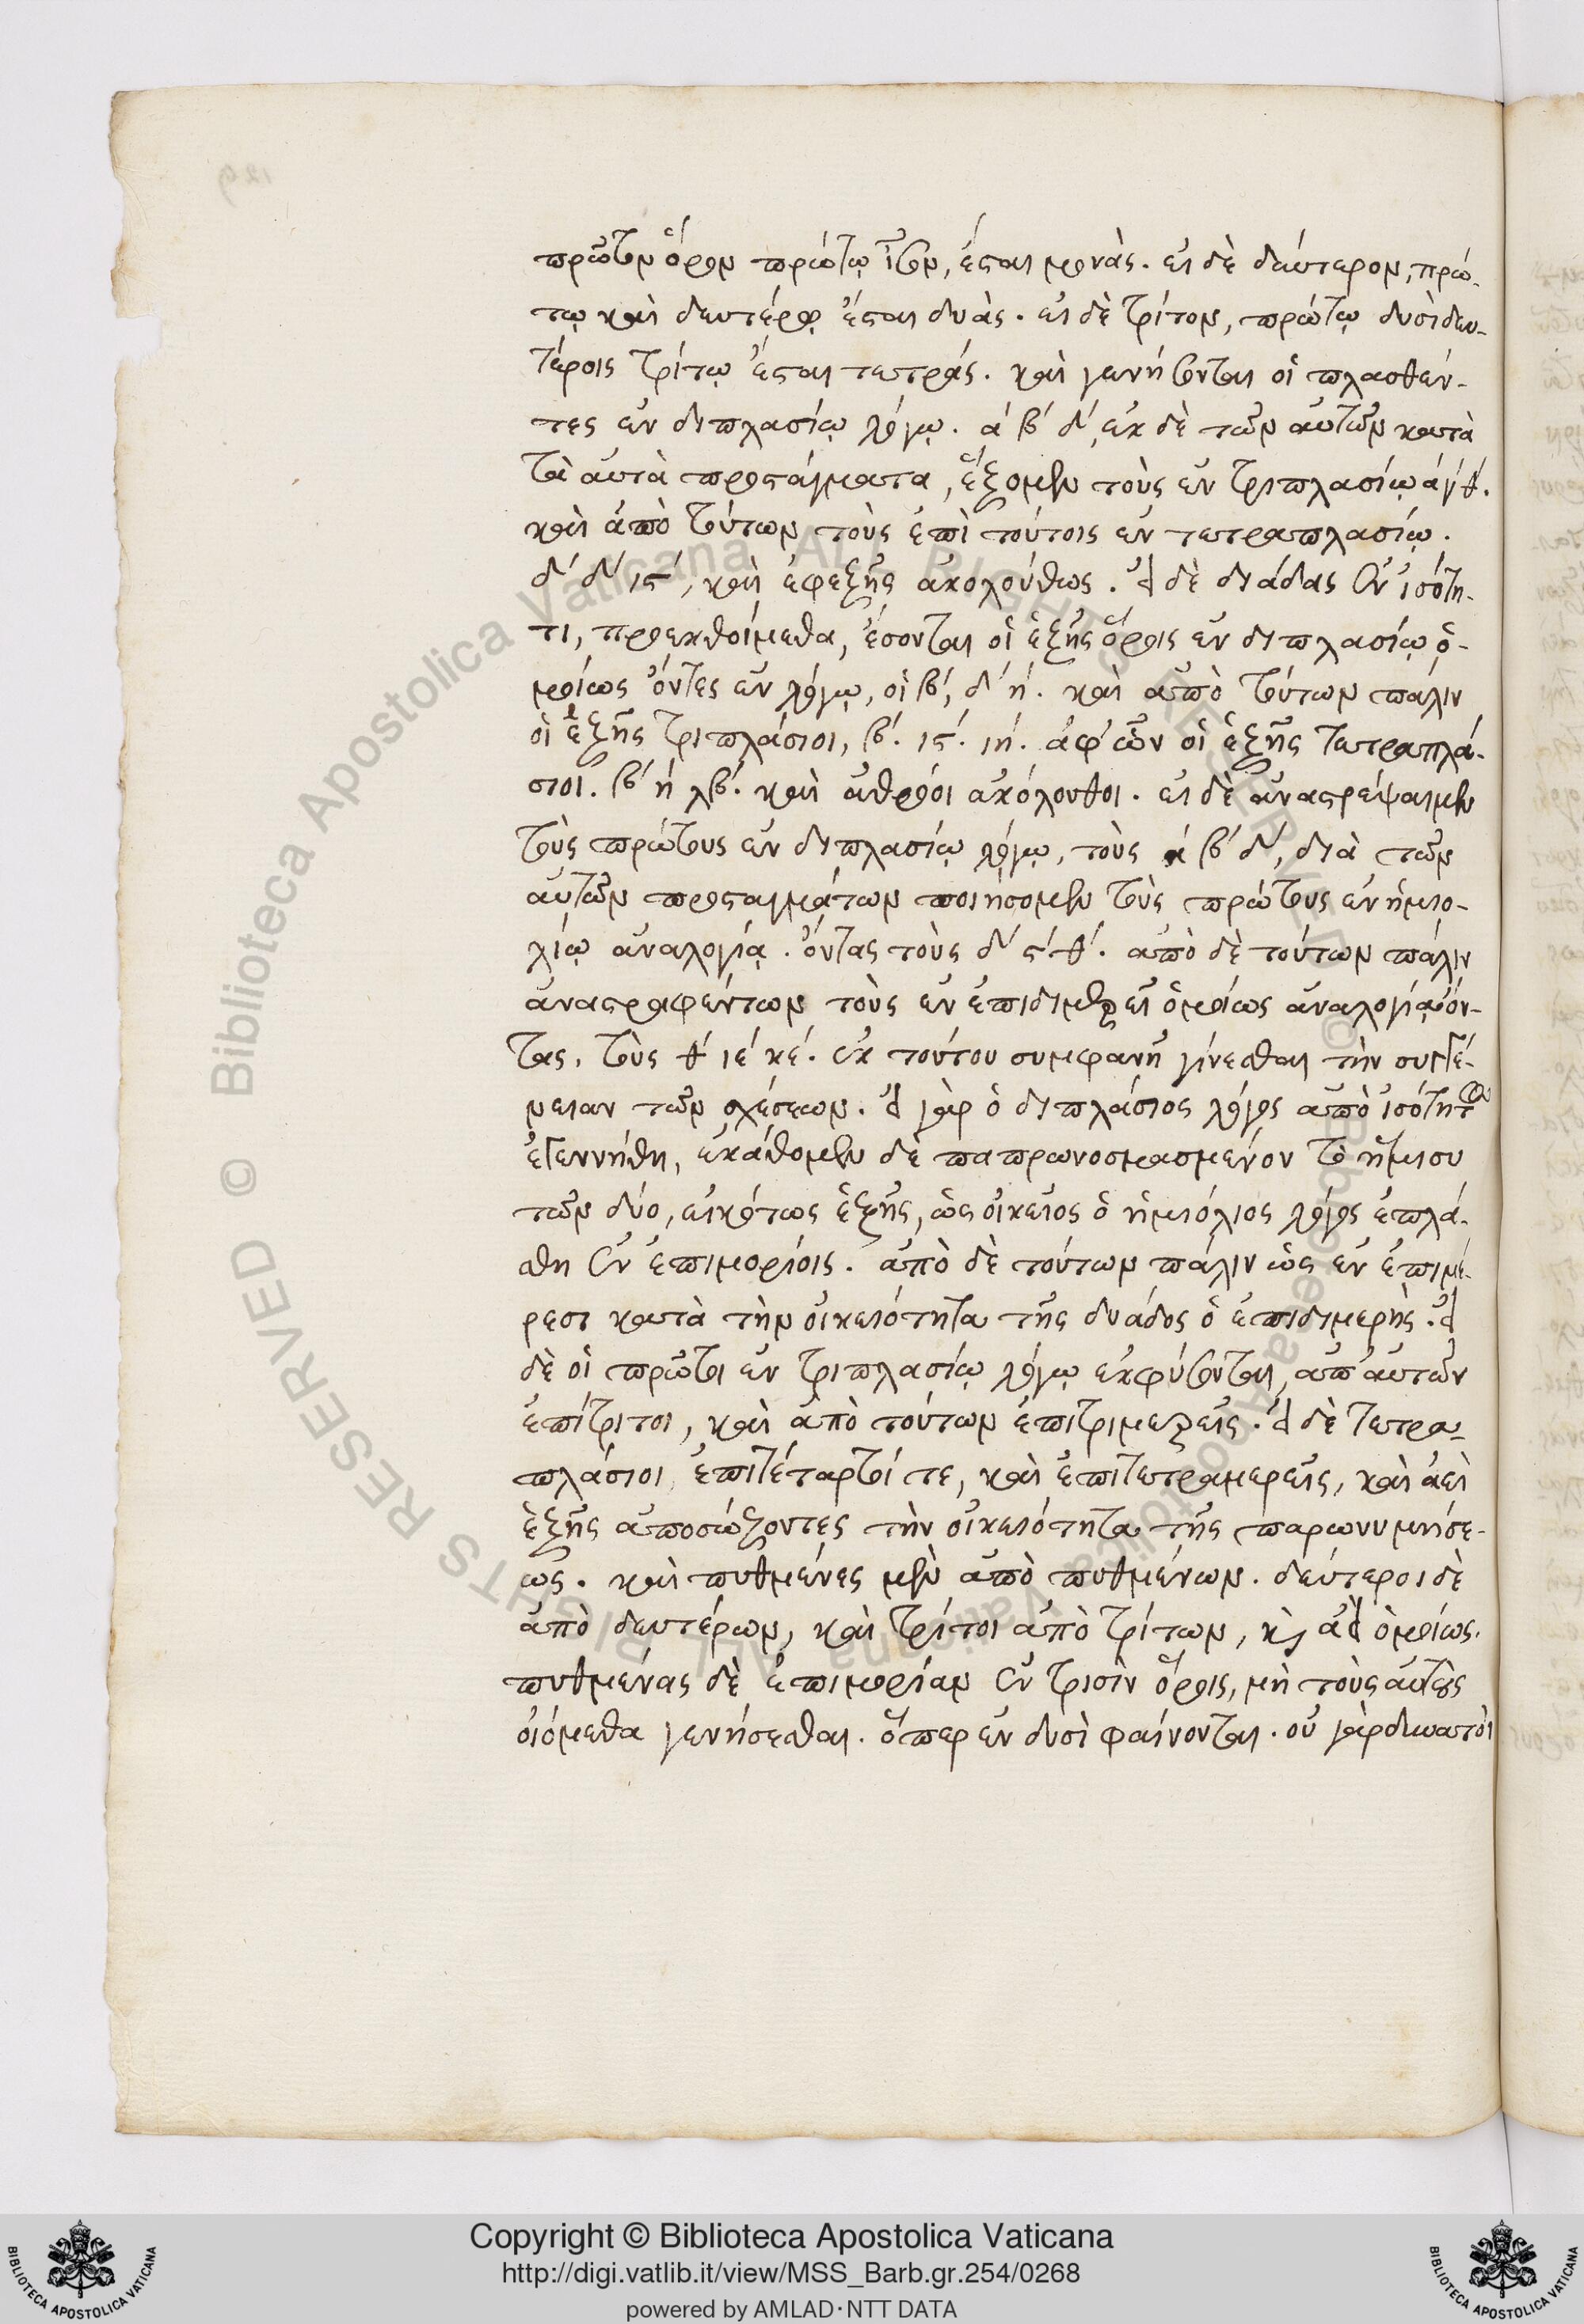 πρῶτον ὅρον πρώτῳ ἶσον, ἔσται μονὰς. εἰ δὲ δεύτερον, πρώ-
τῳ καὶ δευτέρῳ ἔσται δυὰς. εἰ δὲ τρίτον, πρώτῳ δυσὶ δευ-
τέροις τρίτῳ ἔσται τετράς. καὶ γενήσονται οἱ πλασθέν-
τες ἐν διπλασίῳ λόγῳ. ά β́ δ́, ἐκ δὲ τῶν αὐτῶν κατὰ
τὰ αὐτὰ προστάγματα, ἕξομεν τοὺς ἐν τριπλασίῳ ά γ́ θ́.
καὶ ἀπὸ τούτων τοὺς ἐπὶ τούτοις ἐν τετραπλασίῳ.
δ́ δ́ ιϛ́, καὶ ἐφεξῆς ἀκολούθως. εἰ δὲ δυάδας ἐν ἰσότη-
τι, προεκθοίμεθα, ἔσονται οἱ ἑξῆς ὅροις ἐν διπλασίῳ ὁ-
μοίως ὄντες ἐν λόγῳ, οἱ β́, δ́ ή. καὶ ἀπὸ τούτων πάλιν
οἱ ἑξῆς τριπλάσιοι, β́. ιϛ́. ιή. ἀφ' ὧν οἱ ἑξῆς τετραπλά-
σιοι. β́ ή λβ́. καὶ ἀθρόι ἀκόλουθοι. εἰ δὲ ἀναστρέψαιμεν
τοὺς πρώτους ἐν διπλασίῳ λόγῳ, τοὺς ά β́ δ́, διὰ τῶν
αὐτῶν προσταγμάτων ποιήσομεν τοὺς πρώτους ἐν ἡμιο-
λίῳ ἀναλογίᾳ. ὄντας τοὺς δ́ ϛ́ θ́. ἀπὸ δὲ τούτων πάλιν
ἀναστραφέντων τοὺς ἐν ἐπιδιμερεῖ ὁμοίως ἀναλογίᾳ ὄν-
τας, τοὺς θ́ ιέ κέ. ἐκ τούτου συμφανῆ γίνεσθαι τὴν συγγέ-
νειαν τῶν σχέσεων. εἰ γὰρ ὁ διπλάσιος λόγος ἀπὸ ἰσότητος
ἐγεννήθη, εἰκάθομεν δὲ παπρωνοσμασμένον τὸ ἥμισυ
τῶν δύο, εἰκότως ἑξῆς, ὡς οἰκεῖος ὁ ἡμιόλιος λόγος ἐπλά-
σθη ἐν ἐπιμορίοις. ἀπὸ δὲ τούτων πάλιν ὡς ἐν ἐπιμέ-
ρεσι κατὰ τὴν οἰκειότητα τῆς δυάδος ὁ ἐπιδιμερὴς. εἰ
δὲ οἱ πρῶτοι ἐν τριπλασίῳ λόγῳ ἐκφύσονται, ἀπ' αὐτῶν
ἐπίτριτοι, καὶ ἀπὸ τούτων ἐπιτριμερεῖς. εἰ δὲ τετρα-
πλάσιοι, ἐπιτέταρτοί τε, καὶ ἐπιτετραμερεῖς, καὶ ἀεὶ
ἑξῆς ἀποσώζοντες τὴν οἰκειότητα τῆς παρωνυμήσε-
ως. καὶ πυθμένες μὲν ἀπὸ πυθμένων. δεύτεροι δὲ
ἀπὸ δευτέρων, καὶ τρίτοι ἀπὸ τρίτων, καὶ ἀεὶ ὁμοίως.
πυθμένας δὲ ἐπιμορίαν ἐν τρισὶν ὅροις, μὴ τοὺς αὐτοὺς
οἰόμεθα γενήσεσθαι. ὅπερ ἐν δυσὶ φαίνονται. οὐ γὰρ δυνατὸι
© Biblioteca Apostolica Vaticana ALL RIGHTS RESERVED
Copyright © Biblioteca Apostolica Vaticana
http://digi.vatlib.it/view/MSS_Barb.gr.254/0268
powered by AMLAD·NTT DATA
BIBLIOTECA APOSTOLICA VATICANA
BIBLIOTECA APOSTOLICA VATICANA